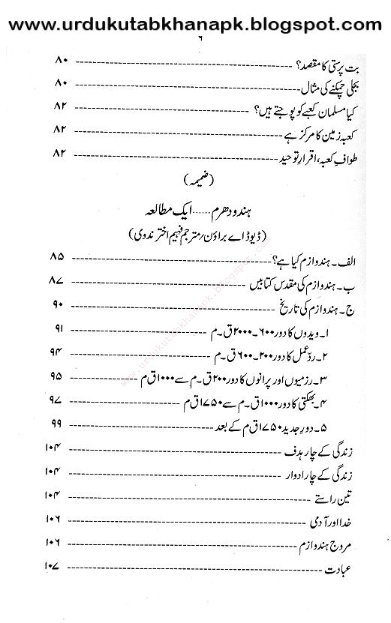 www.urdukutabkhanapk.blogspot.com
۶
بت پرستی کا مقصد؟ ۸۰
بجلی چمکنے کی مثال ۸۰
کیا مسلمان کعبے کو پوجتے ہیں؟ ۸۲
کعبہ زمین کا مرکز ہے ۸۲
طواف کعبہ، اقرار توحید ۸۲
(ضمیمہ)
ہندو دھرم ...... ایک مطالعہ
(ڈیوڈ اے براؤن/مترجم فہیم اختر ندوی)
الف۔ ہندوازم کیا ہے؟ ۸۵
ب۔ ہندوازم کی مقدس کتابیں ۸۷
ج۔ ہندوازم کی تاریخ ۹۰
۱۔ ویدوں کا دور ۶۰۰-۲۰۰۰ ق۔م ۹۱
۲۔ ردعمل کا دور ۲۰۰-۶۰۰ ق۔م ۹۴
۳۔ رزمیوں اور پرانوں کا دور ۲۰۰ ق۔م سے ۱۰۰۰ ق م ۹۵
۴۔ بھکتی کا دور ۱۰۰۰ ق۔م سے ۱۷۵۰ ق م ۹۷
۵۔ دور جدید ۱۷۵۰ ق م کے بعد ۹۹
زندگی کے چار ہدف ۱۰۴
زندگی کے چار ادوار ۱۰۴
تین راستے ۱۰۴
خدا اور آدمی ۱۰۶
مروج ہندوازم ۱۰۶
عبادت ۱۰۷